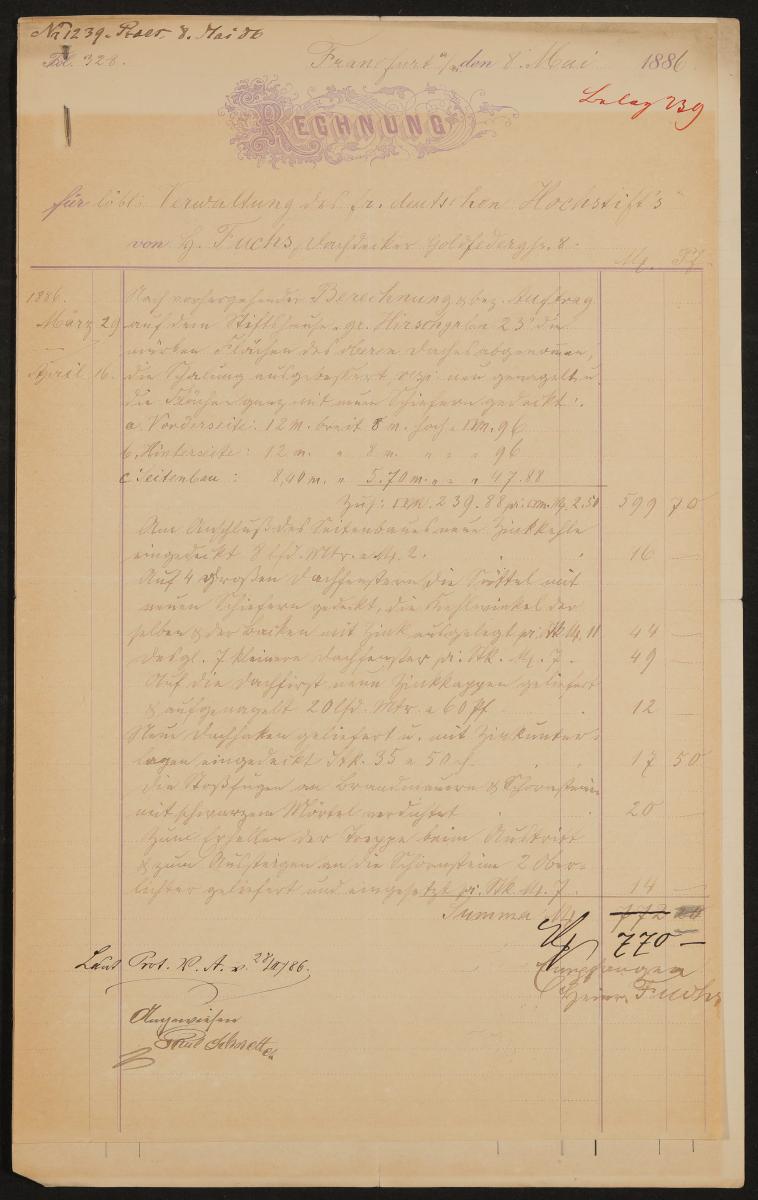 No 1239. Praes. 8. Mai 86
Fol. 328.
Frankfurt a/M den 8. Mai 1886.
Beleg 239
RECHNUNG
für löbl. Verwaltung des fr. deutschen Hochstift's
von H. Fuchs, Dachdecker Goldfedergss. 8.
M. Pf.
1886. Nach vorhergehender Berechnung & bez. Auftrag
März 29 auf dem Stiftshause gr. Hirschgraben 23 die
— Flächen des oberen Daches abgenommen,
April 16. die Schalung ausgebessert neu genagelt u.
die Flächen ganz mit neuen Schiefern gedeckt:
a. Vorderseite: 12 m. breit 8 m. hoch = □m. 96
b. Hinterseite: 12 m. " 8 m. " " " 96
c. Seitenbau: 8,40 m. " 5.70 m. " " " 47.88
Zus: □m. 239.88 pr. □m. M. 2.50 599 70
Am Anschluß des Seitenbaues neue Zinkkehle
eingedeckt 8 lfd. Mtr. a M. 2. 16 —
Auf 4 großen Dachfenstern die Sättel mit
neuen Schiefern gedeckt, die Kehlwinkel der
selben & der Backen mit Zink ausgelegt pr. Stk M. 11 44 —
desgl. 7 kleinere Dachfenster pr. Stk. M. 7. 49 —
Auf die Dachfirst neue Zinkkappen geliefert
& aufgenagelt 20 lfd. Mtr. a 60 Pf. 12 —
Neue Dachhaken geliefert u. mit Zinkunter-
lagen eingedeckt Stk. 35 a 50 Pf. 17 50
Die Stoßfugen an Brandmauern & Schornsteine
mit schwarzem Mörtel verdichtet 20 —
Zum Erhellen der Treppe beim Austritt
& zum Aussteigen an die Schornsteine 2 Ober-
lichter geliefert und eingesetzt pr. Stk. M. 7. 14 —
Summa M. 772 20
M 770 —
Laut Prot. V. A. v.
Empfangen
Heinr. Fuchs
Angewiesen
Paul